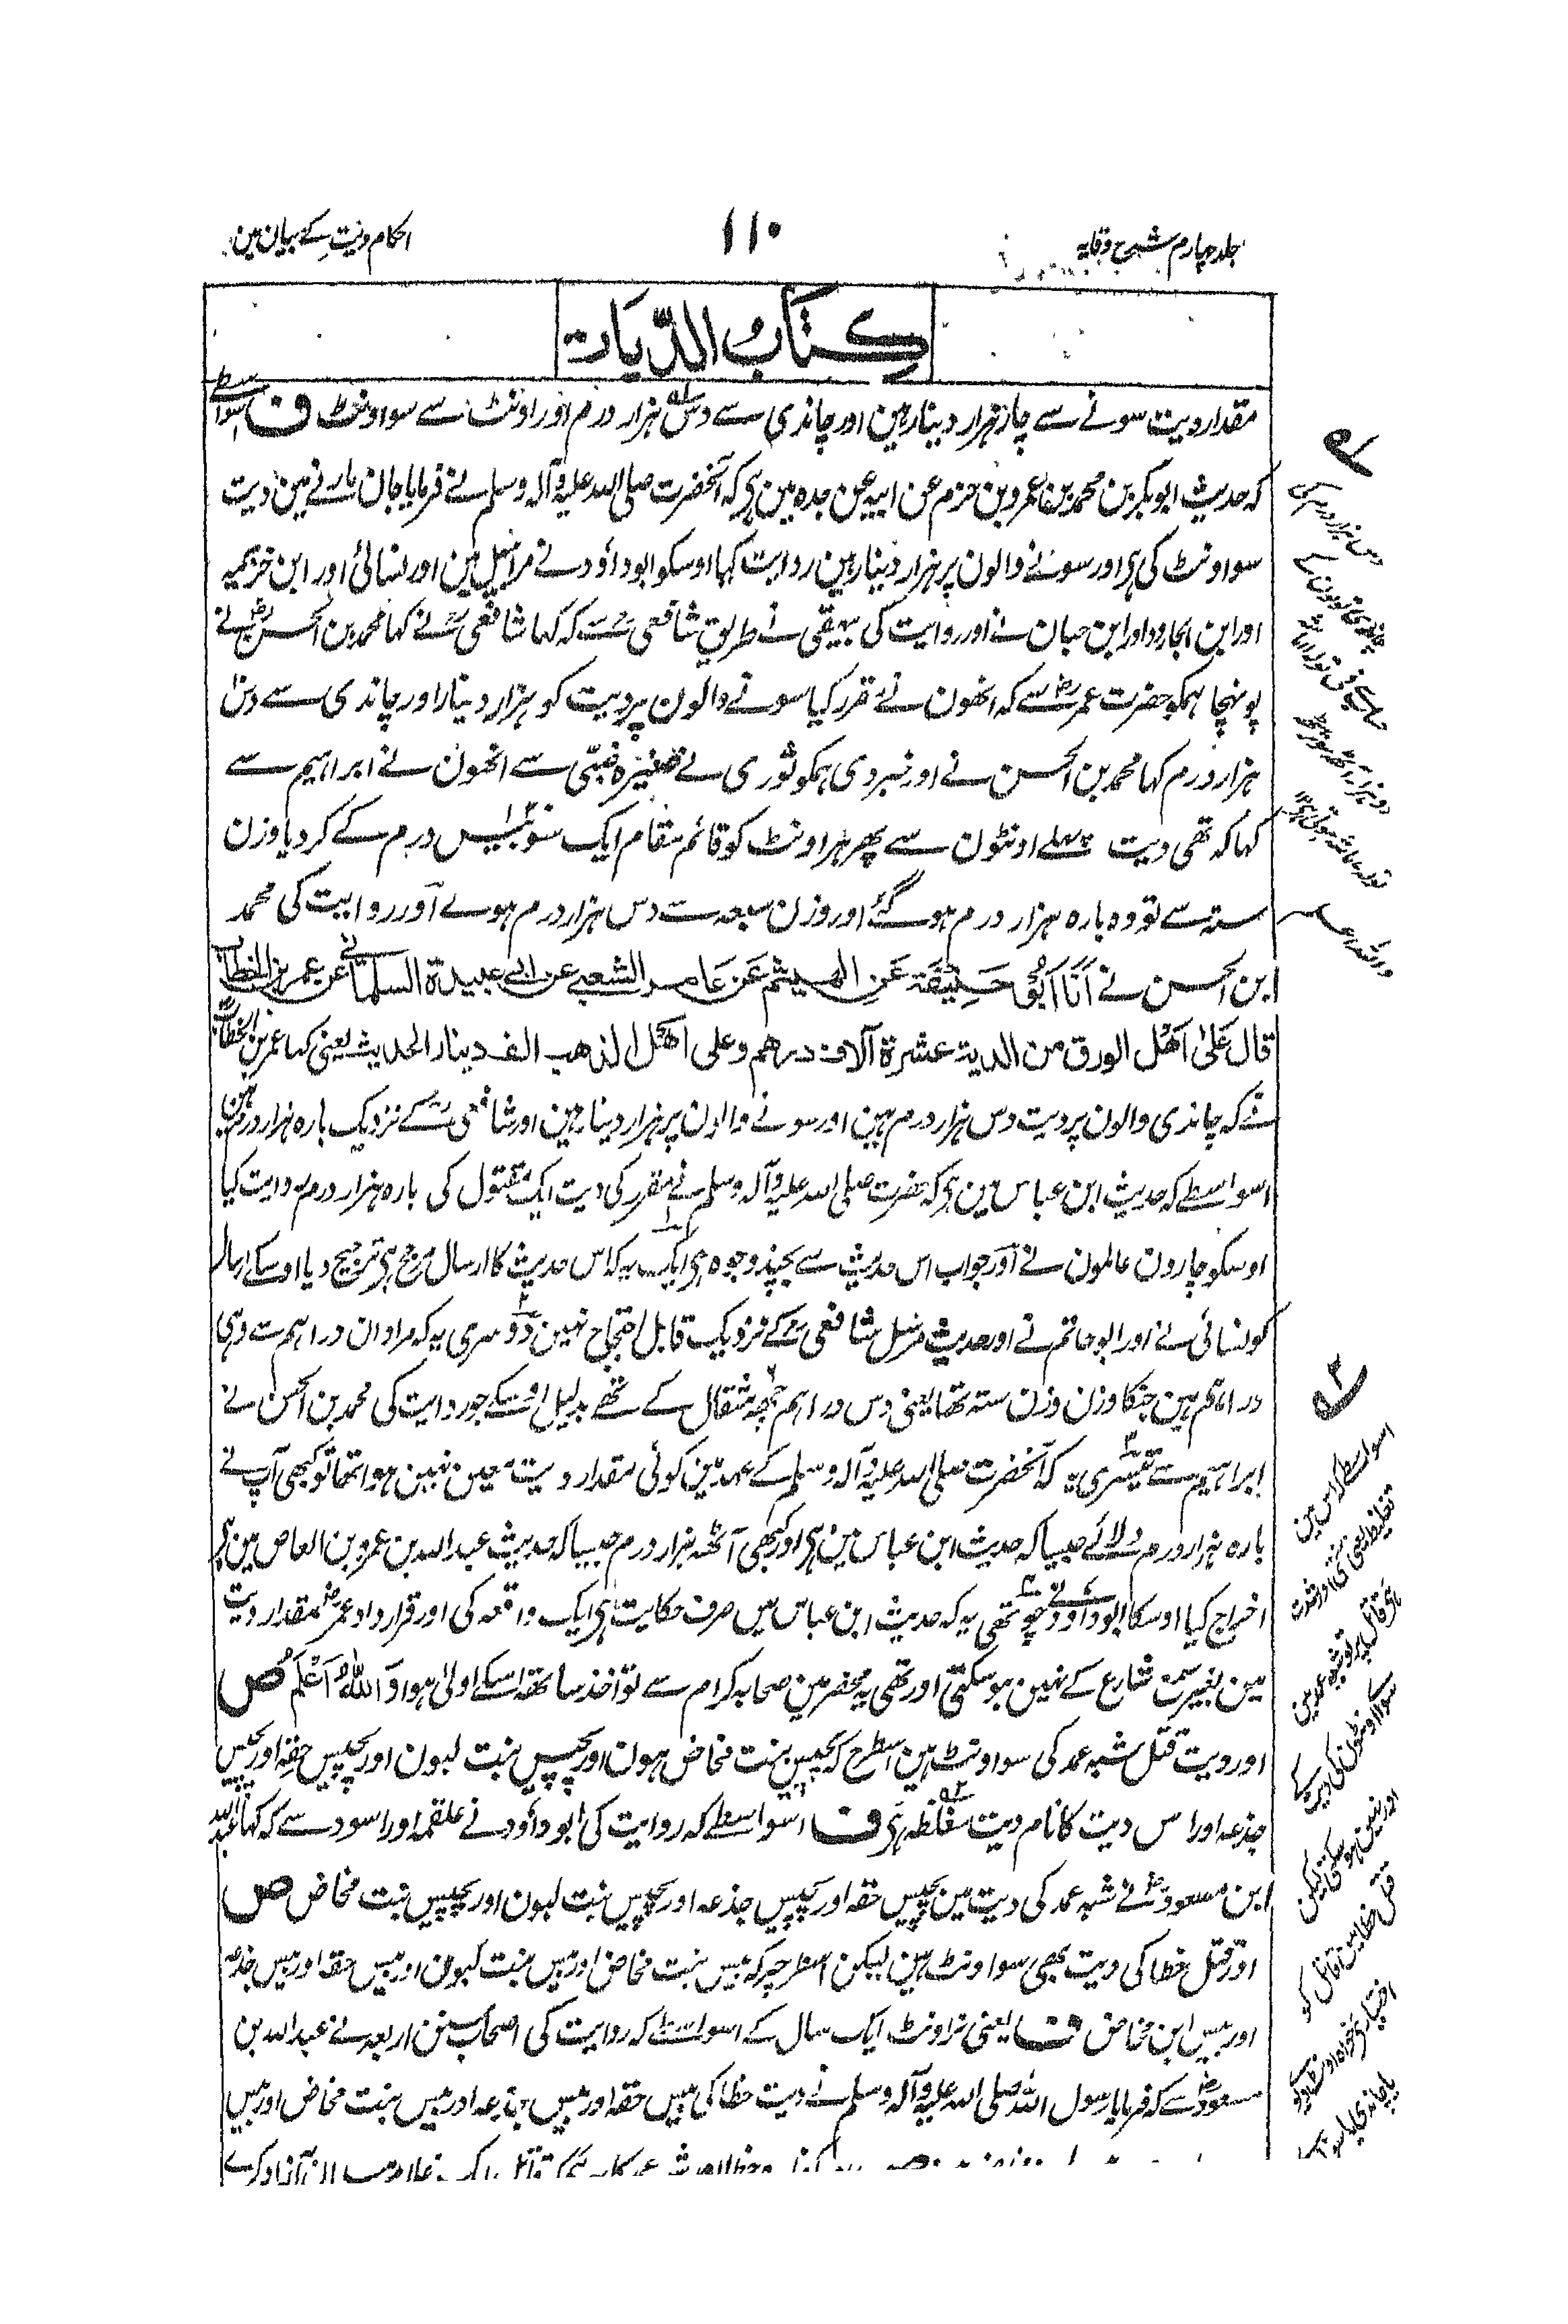 جلد چہارم شرح وقایہ
۱۱۰
احکام دیت کے بیان مین
کتاب الدیات
مقدار دیت سونے سے ہزار دینار ہین اور چاندی سے دس ہزار درم اور اونٹ سے سو اونٹ ف اسواسطے
کہ حدیث ابوبکر بن محمد بن عمرو بن حزم عن ابیہ عن جدہ مین ہی کہ آنحضرت صلی اللہ علیہ وآلہ وسلم نے فرمایا جان مارنے مین دیت
سو اونٹ کی ہی اور سونے والون پر ہزار دینار ہین روایت کیا اوسکو ابوداؤد نے مراسیل مین اور نسائی اور ابن خزیمہ
اور ابن الجارود اور ابن حبان نے اور روایت کی بیہقی نے طریق شافعی سے کہ کہا شافعی نے کہا محمد بن الحسن نے
پونہچا ہمکو حضرت عمر رض سے کہ انھون نے مقرر کیا سونے والون پر دیت کو ہزار دینار اور چاندی سے دس
ہزار درم کہا محمد بن الحسن نے اور خبر دی ہمکو ثوری نے مغیرہ ضبّی سے انھون نے ابراہیم سے
کہا کہ تھی دیت پہلے اونٹون سے پھر ہر اونٹ کو قائم مقام ایک سو بیس درم کے کر دیا وزن
ستہ سے تو وہ بارہ ہزار درم ہو گئے اور وزن سبعہ سے دس ہزار درم ہوے اور روایت کی محمد
ابن الحسن نے اَنَا اَبُو حَنِیْفَة عَنِ الهیثم عَن عَامر الشعبی عن ابی عبیدة السلمانی عن عمر بن الخطاب
قال عَلیٰ اَهْل الورق من الدیة عشرة آلاف درهم وعلی اهل الذهب الف دینار الحدیث یعنی کہا عمر بن الخطاب
نے کہ چاندی والون پر دیت دس ہزار درم ہین اور سونے والون پر ہزار دینار ہین اور شافعی کے نزدیک بارہ ہزار درم ہین
اسواسطے کہ حدیث ابن عباس مین ہی کہ حضرت صلی اللہ علیہ وآلہ وسلم نے مقرر کی دیت ایک مقتول کی بارہ ہزار درم روایت کیا
اوسکو چارون عالمون نے اور جواب اس حدیث سے بچند وجوہ ہی ایک یہ کہ اس حدیث کا ارسال مرجح ہی ترجیح دیا اوسکے ارسال
کو نسائی نے اور ابوحاتم نے اور حدیث مرسل شافعی کے نزدیک قابل احتجاج نہین دوسری یہ کہ مراد ان دراہم سے وہی
دراہم ہین جنکا وزن وزن ستہ تھا یعنی دس دراہم چھ مثقال کے تھے بدلیل اوسکے جو روایت کی محمد بن الحسن نے
ابراہیم سے تیسری یہ کہ آنحضرت صلی اللہ علیہ وآلہ وسلم کے عہد مین کوئی مقدار دیت معین نہین ہوا تھا تو کبھی آپ نے
بارہ ہزار درم دلائے جیسا کہ حدیث ابن عباس مین ہی اور کبھی آٹھ ہزار درم جیسا کہ حدیث عبد اللہ بن عمرو بن العاص مین ہی
اخراج کیا اوسکا ابوداؤد نے چوتھی یہ کہ حدیث ابن عباس میں صرف حکایت ہی ایک واقعہ کی اور قرارداد عمر رض مقدار دیت
مین بغیر سمع شارع کے نہین ہو سکتی اور تھی یہ محضر مین صحابہ کرام سے تو اخذ ساتھ اسکے اولیٰ ہوا وَاللهُ اَعْلَمُ ص
اور دیت قتل شبہ عمد کی سو اونٹ ہین اسطرح کہ پچیس بنت مخاض ہون اور پچیس بنت لبون اور پچیس حقہ اور پچیس
جذعہ اور اس دیت کا نام دیت مغلظہ ہی ف اسواسطے کہ روایت کی ابوداؤد نے علقمہ اور اسود سے کہ کہا عبد اللہ
ابن مسعود رض نے شبہ عمد کی دیت مین پچیس حقہ اور پچیس جذعہ اور پچیس بنت لبون اور پچیس بنت مخاض ص
اور قتل خطا کی دیت بھی سو اونٹ ہین لیکن اسطرح پر کہ بیس بنت مخاض اور بیس بنت لبون اور بیس حقہ اور بیس جذعہ
اور بیس ابن مخاض ف یعنی نر اونٹ ایک سال کے اسواسطے کہ روایت کی اصحاب سنن اربعہ نے عبد اللہ بن
مسعود رض سے کہ فرمایا رسول اللہ صلی اللہ علیہ وآلہ وسلم نے دیت خطا کی بیس حقہ اور بیس جذعہ اور بیس بنت مخاض اور بیس
۱
دس ہزار درم کی
۲
اسواسطے کہ اس مین
تغلیظ یعنی سختی اور شدت
ہی قاتل پر تو شبہ عمد مین
سوا اونٹون کی دیت کے
اور نہین ہو سکتی لیکن
قتل خطا مین قاتل کو
اختیار ہی خواہ اونٹ دیوے
یا چاندی یا سونا